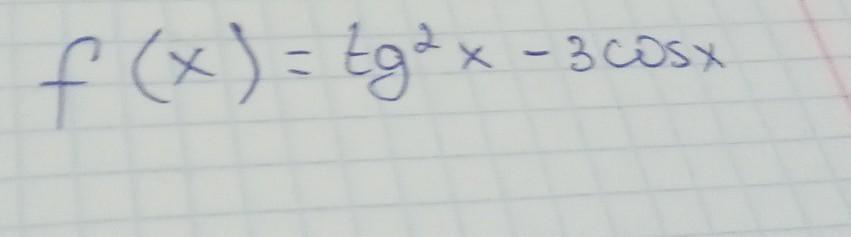 f(x) = tg² x - 3cosx